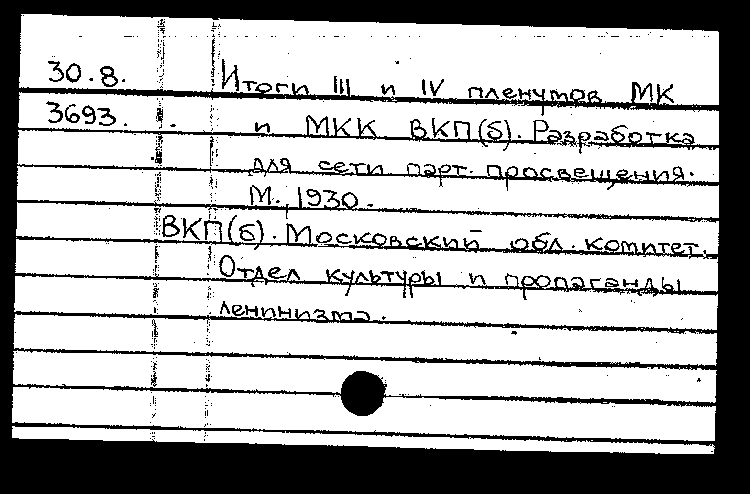 30.8. Итоги III и IV пленумов МК
3693. и МКК ВКП(б). Разработка
для сети парт. просвещения.
М., 1930.
ВКП(б). Московский обл. комитет.
Отдел культуры и пропаганды
ленинизма.